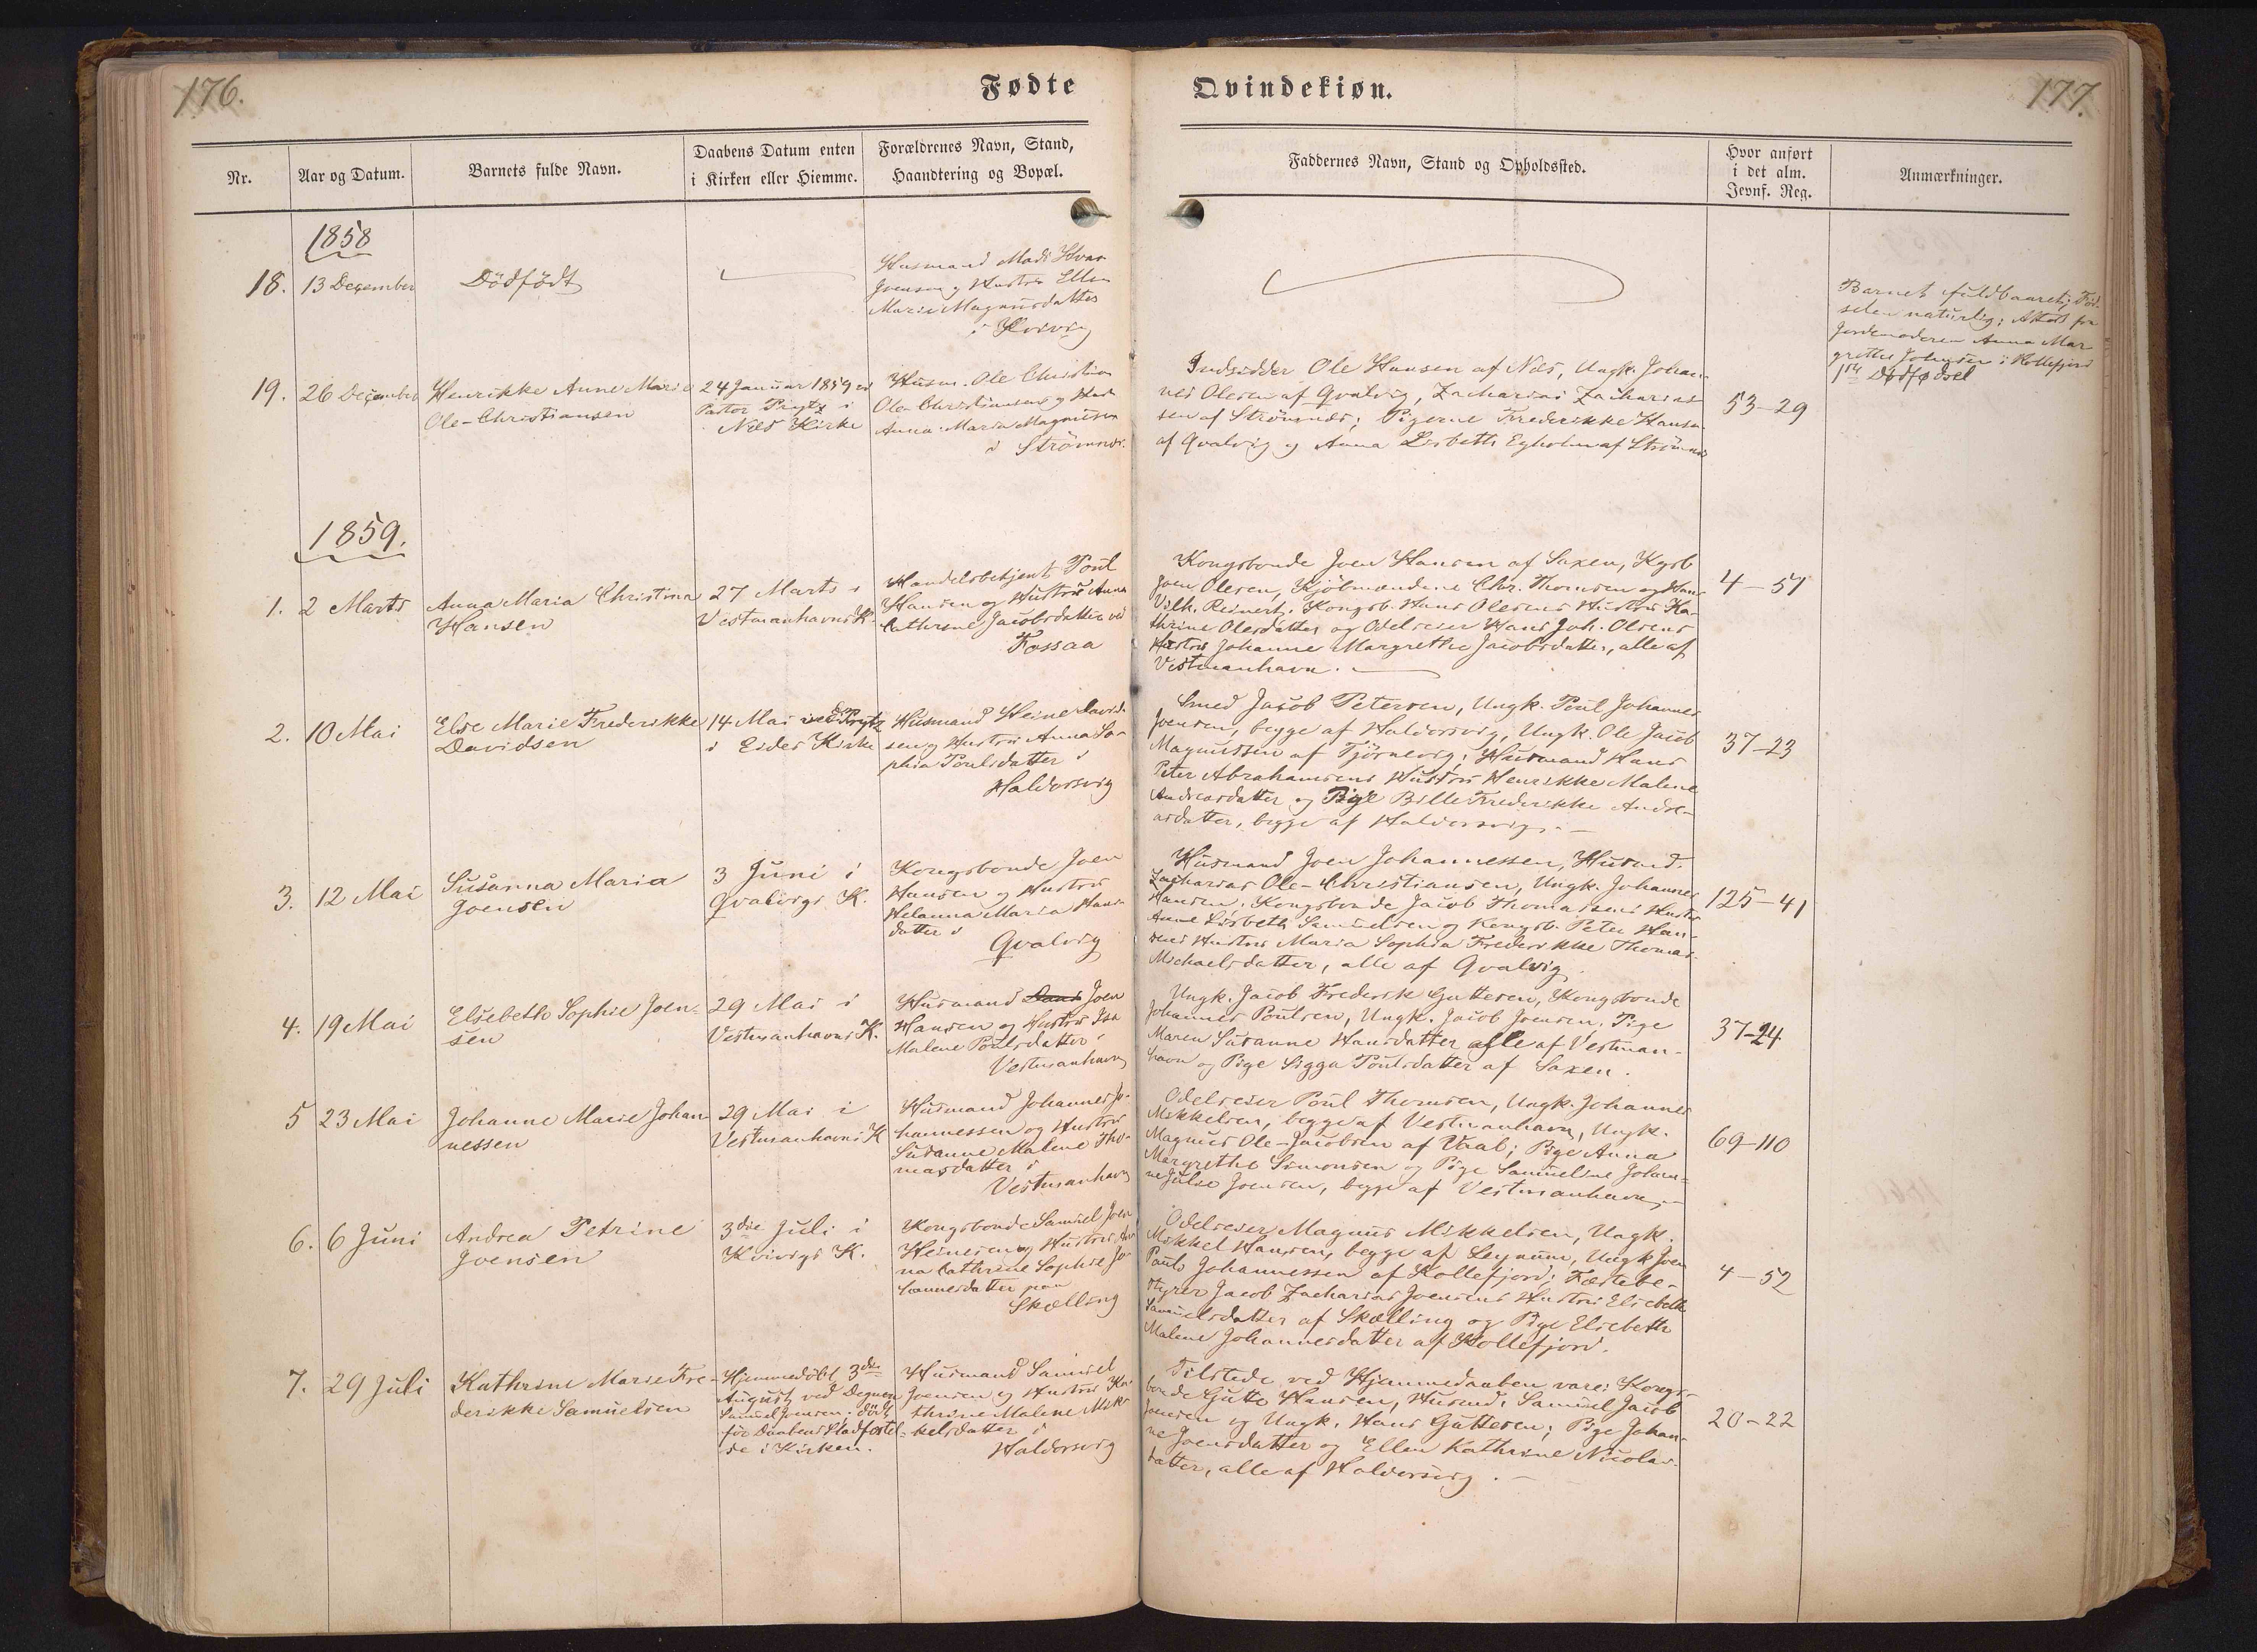 176.
Fødte
Qvindekiøn.
177.
Nr.
Aar og Datum.
Barnets fulde Navn.
Daabens Datum enten
i Kirken eller Hiemme.
Forældrenes Navn, Stand,
Haandtering og Bopæl.
Faddernes Navn, Stand og Opholdssted.
Hvor anført
i det alm.
Jevnf. Reg.
Anmærkninger.
1858
18.
13 December
Dödfödt
Husmand Mads
Joensen og Hustru Ellen
Marie Magnusdatter
i Kvivig
Barnet fuldbaaret; Fød-
selen naturlig; Attest fra
Jordemoderen Anna Mar
grethe i Kollefjord
Dødfødsel
19.
26 December
Henrikke Anne Marie
Ole-Christiansen
24 Januar 1859 ved
Pastor Prytz i
Næs Kirke
Husm. Ole Christian
Ole-Christiansen og Hust
Anna Maria Magnussen
i Strömnæs.
Indsidder Ole Hansen af Næs, Ungk. Johan-
nes Olesen af Qvalvig, Zacharias Zacharias-
sen af Strömnæs; Pigerne Frederikke Hansen
af Qvalvig og Anna Lisbeth Egholm af Strömnæs
53-29
1859.
1.
2 Marts
Anna Maria Christina
Hansen
27 Marts i
Vestmanhavns K.
Handelsbetjent Poul
Hansen og Hustru Anna
Cathrine Jacobsdatter ved
Fossaa
Kongsbonde Joen Hansen af Saxen, Kgsb
Joen Olesen, Kjöbmændene Chr. Thomsen og Hans
Vilh. Reinert, Kongsb. Hans Olesens Hustru Ka-
thrine Olesdatter og Odelseier Hans Joh. Olsens
Hustru Johanne Margrethe Jacobsdatter, alle af
Vestmanhavn.
4-51
2.
10 Mai
Else Marie Frederikke
Davidsen
14 Mai ved Prytz
i Eides Kirke
Husmand Heine David-
sen og Hustru Anna So-
phia Poulsdatter i
Haldorsvig
Smed Jacob Petersen, Ungk. Poul Johannes
Joensen, begge af Haldorsvig, Ungk. Ole Jacob
Magnussen af Tjörnevig; Husmand Hans
Peter Abrahamsens Hustru Henrikke Malene
Andreasdatter og Pige Bille Frederikke Andre-
asdatter, begge af Haldorsvig.
37-23
3.
12 Mai
Susanna Maria
Joensen
3 Juni i
Qvalvigs K.
Kongsbonde Joen
Hansen og Hustru
Helanna Maria Hans-
datter i
Qvalvig
Husmand Joen Johannessen, Husmd.
Zacharias Ole-Christiansen, Ungk. Johannes
Hansen, Kongsbonde Jacob Thomassens Hustru
Anne Lisbeth Samuelsen og Kongsb. Peter Han-
sens Hustru Maria Sophia Frederikke Thomas-
Michaelsdatter, alle af Qvalvig.
125-41
4.
19 Mai
Elsebeth Sophie Joen-
sen
29 Mai i
Vestmanhavns K.
Husmand Joen
Hansen og Hustru
Malene Poulsdatter i
Vestmanhavn
Ungk. Jacob Frederik Guttesen, Kongsbonde
Johannes Poulsen, Ungk. Jacob Joensen, Pige
Maren Susanne Hansdatter alle af Vestman-
havn og Pige Sigga Poulsdatter af Saxen.
37-24
5
23 Mai
Johanne Marie Johan-
nessen
29 Mai i
Vestmanhavns K
Husmand Johannes Jo-
hannessen og Hustru
Susanne Malene Tho-
masdatter i
Vestmanhavn
Odelseier Poul Thomsen, Ungk. Johannes
Mikkelsen, begge af Vestmanhavn, Ungk.
Magnus Ole-Jacobsen af Vaal; Pige Anna
Margrethe Simonsen og Pige Samueline Johan-
ne Julie Joensen, begge af Vestmanhavn.
69-110
6.
6 Juni
Andrea Petrine
Joensen
3die Juli i
Kvivigs K.
Kongsbonde Samuel Joen
Heinesen og Hustru An-
na Cathrine Sophie Jo-
hannesdatter paa
Skælling
Odelseier Magnus Mikkelsen, Ungk.
Mikkel Hansen, begge af Leynum, Ungk Joen
Pauls Johannessen af Kollefjord; Fæstebe-
styrer Jacob Zacharias Joensens Hustru Elsebeth
Samuelsdatter af Skælling og Pige Elsebeth
Malene Johannesdatter af Kollefjord.
4-52
7.
29 Juli
Kathrine Marie Fre-
derikke Samuelsen
Hjemmedöbt 3die
August ved Degnen
Samuel Joensen: död
för Daabens Stadfæstel-
se i Kirken.
Husmand Samuel
Joensen og Hustru Ka-
thrine Malene Mik-
kelsdatter i
Haldorsvig
Tilstede ved Hjemmedaaben vare: Kongs-
bonde Gutte Hansen, Husmd. Samuel Jacob
Joensen og Ungk. Hans Guttesen; Pige Johan-
ne Joensdatter og Ellen Kathrine Nicolas-
datter, alle af Haldorsvig.
20-22